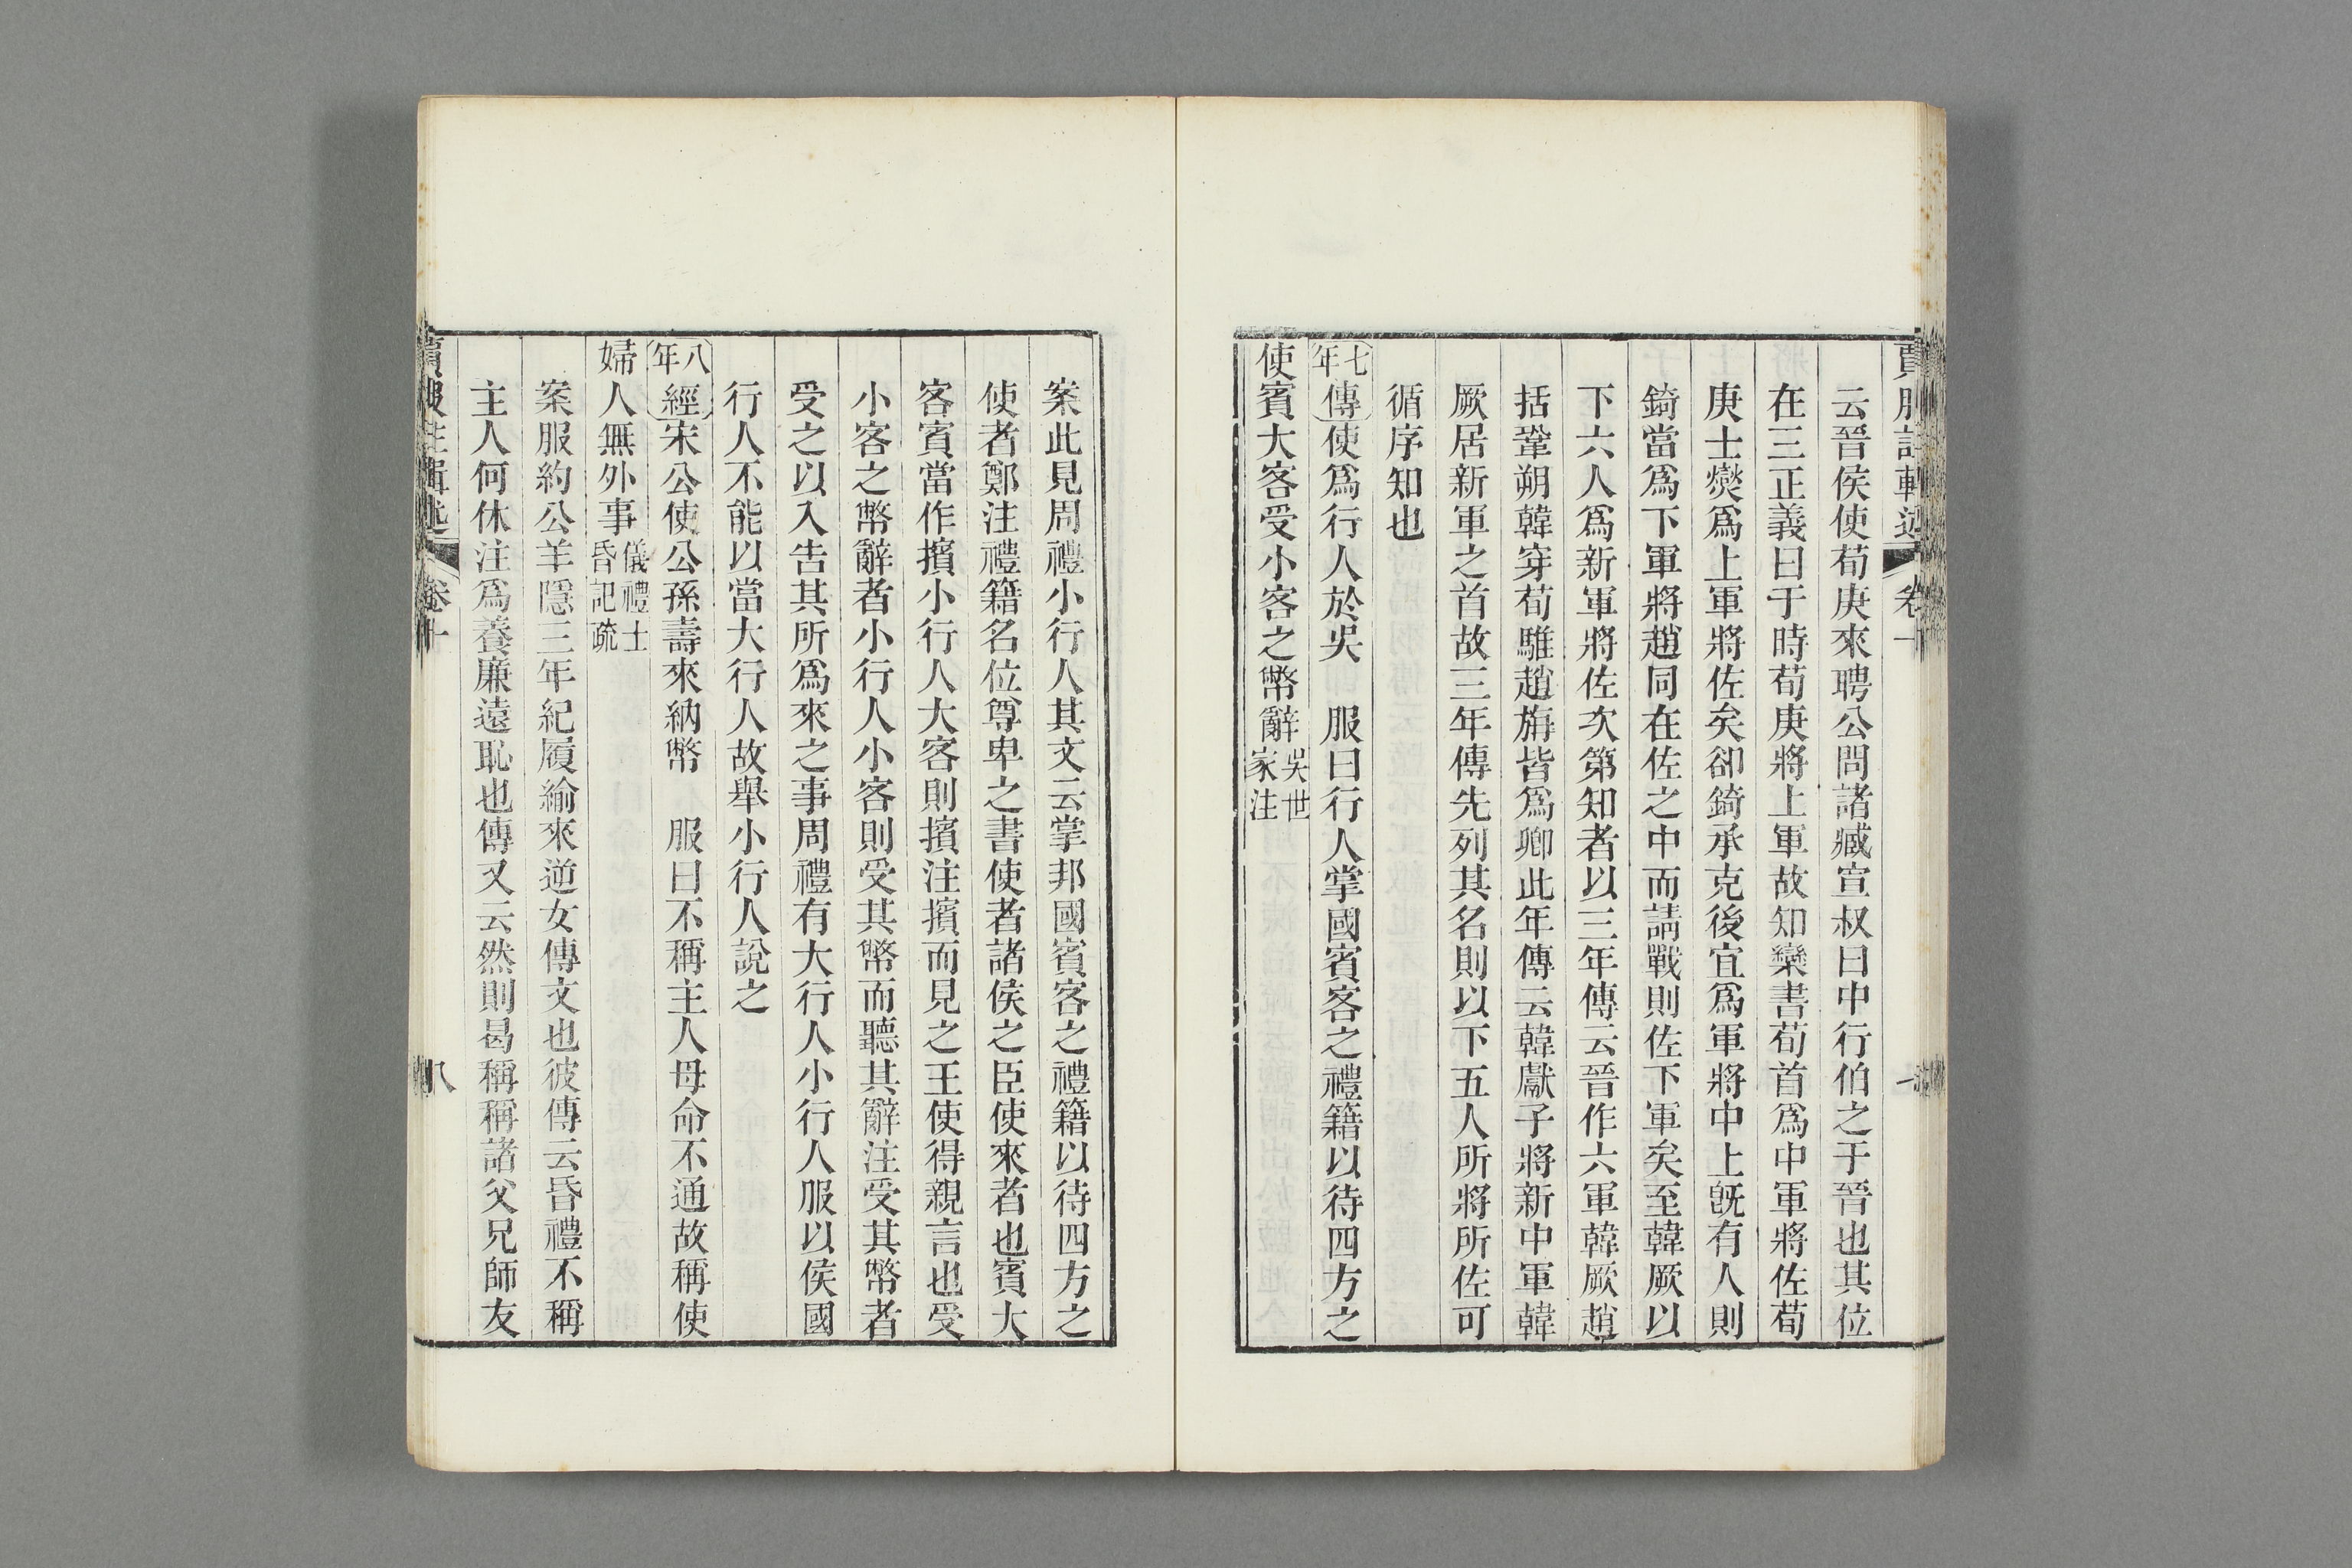 云晉侯使荀庚來聘公問諸臧宣叔曰中行伯之于晉也其位
在三正義曰于時荀庚將上軍故知欒書荀首爲中軍將佐荀
庚士燮爲上軍將佐矣卻錡承克後宜爲軍將中上旣有人則
錡當爲下軍將趙同在佐之中而請戰則佐下軍矣至韓厥以
下六人爲新軍將佐次第知者以三年傳云晉作六軍韓厥趙
括鞏朔韓穿荀騅趙旃皆爲卿此年傳云韓獻子將新中軍韓
厥居新軍之首故三年傳先列其名則以下五人所將所佐可
循序知也
七年傳使爲行人於吳 服曰行人掌國賓客之禮籍以待四方之
使賓大客受小客之幣辭吳世家注
案此見周禮小行人其文云掌邦國賓客之禮籍以待四方之
使者鄭注禮籍名位尊卑之書使者諸侯之臣使來者也賓大
客賓當作擯小行人大客則擯注擯而見之王使得親言也受
小客之幣辭者小行人小客則受其幣而聽其辭注受其幣者
受之以入告其所爲來之事周禮有大行人小行人服以侯國
行人不能以當大行人故舉小行人說之
八年經宋公使公孫壽來納幣 服曰不稱主人母命不通故稱使
婦人無外事儀禮士昏記疏
案服約公羊隱二年紀履緰來逆女傳文也彼傳云昏禮不稱
主人何休注爲養廉遠恥也傳又云然則曷稱稱諸父兄師友
賈服注輯述 卷十 八